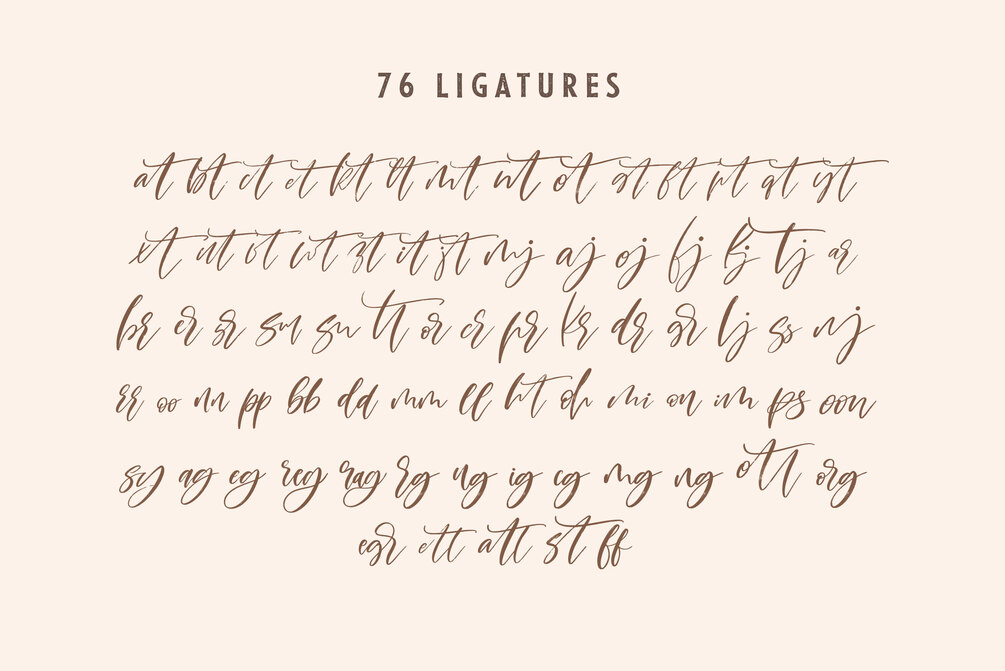 76 LIGATURES
at bt ct et kt lt mt nt ot gt ft pt qt yt
xt ut vt wt zt it jt mj aj oj fj kj tj ar
br er gr su sn tt or cr pr kr dr gr lj ss nj
rr oo nn pp bb dd mm ll ht oh mi on im ps oon
sy ag eg reg rag rg ug ig cg mg ng ott org
egr ett att st ff